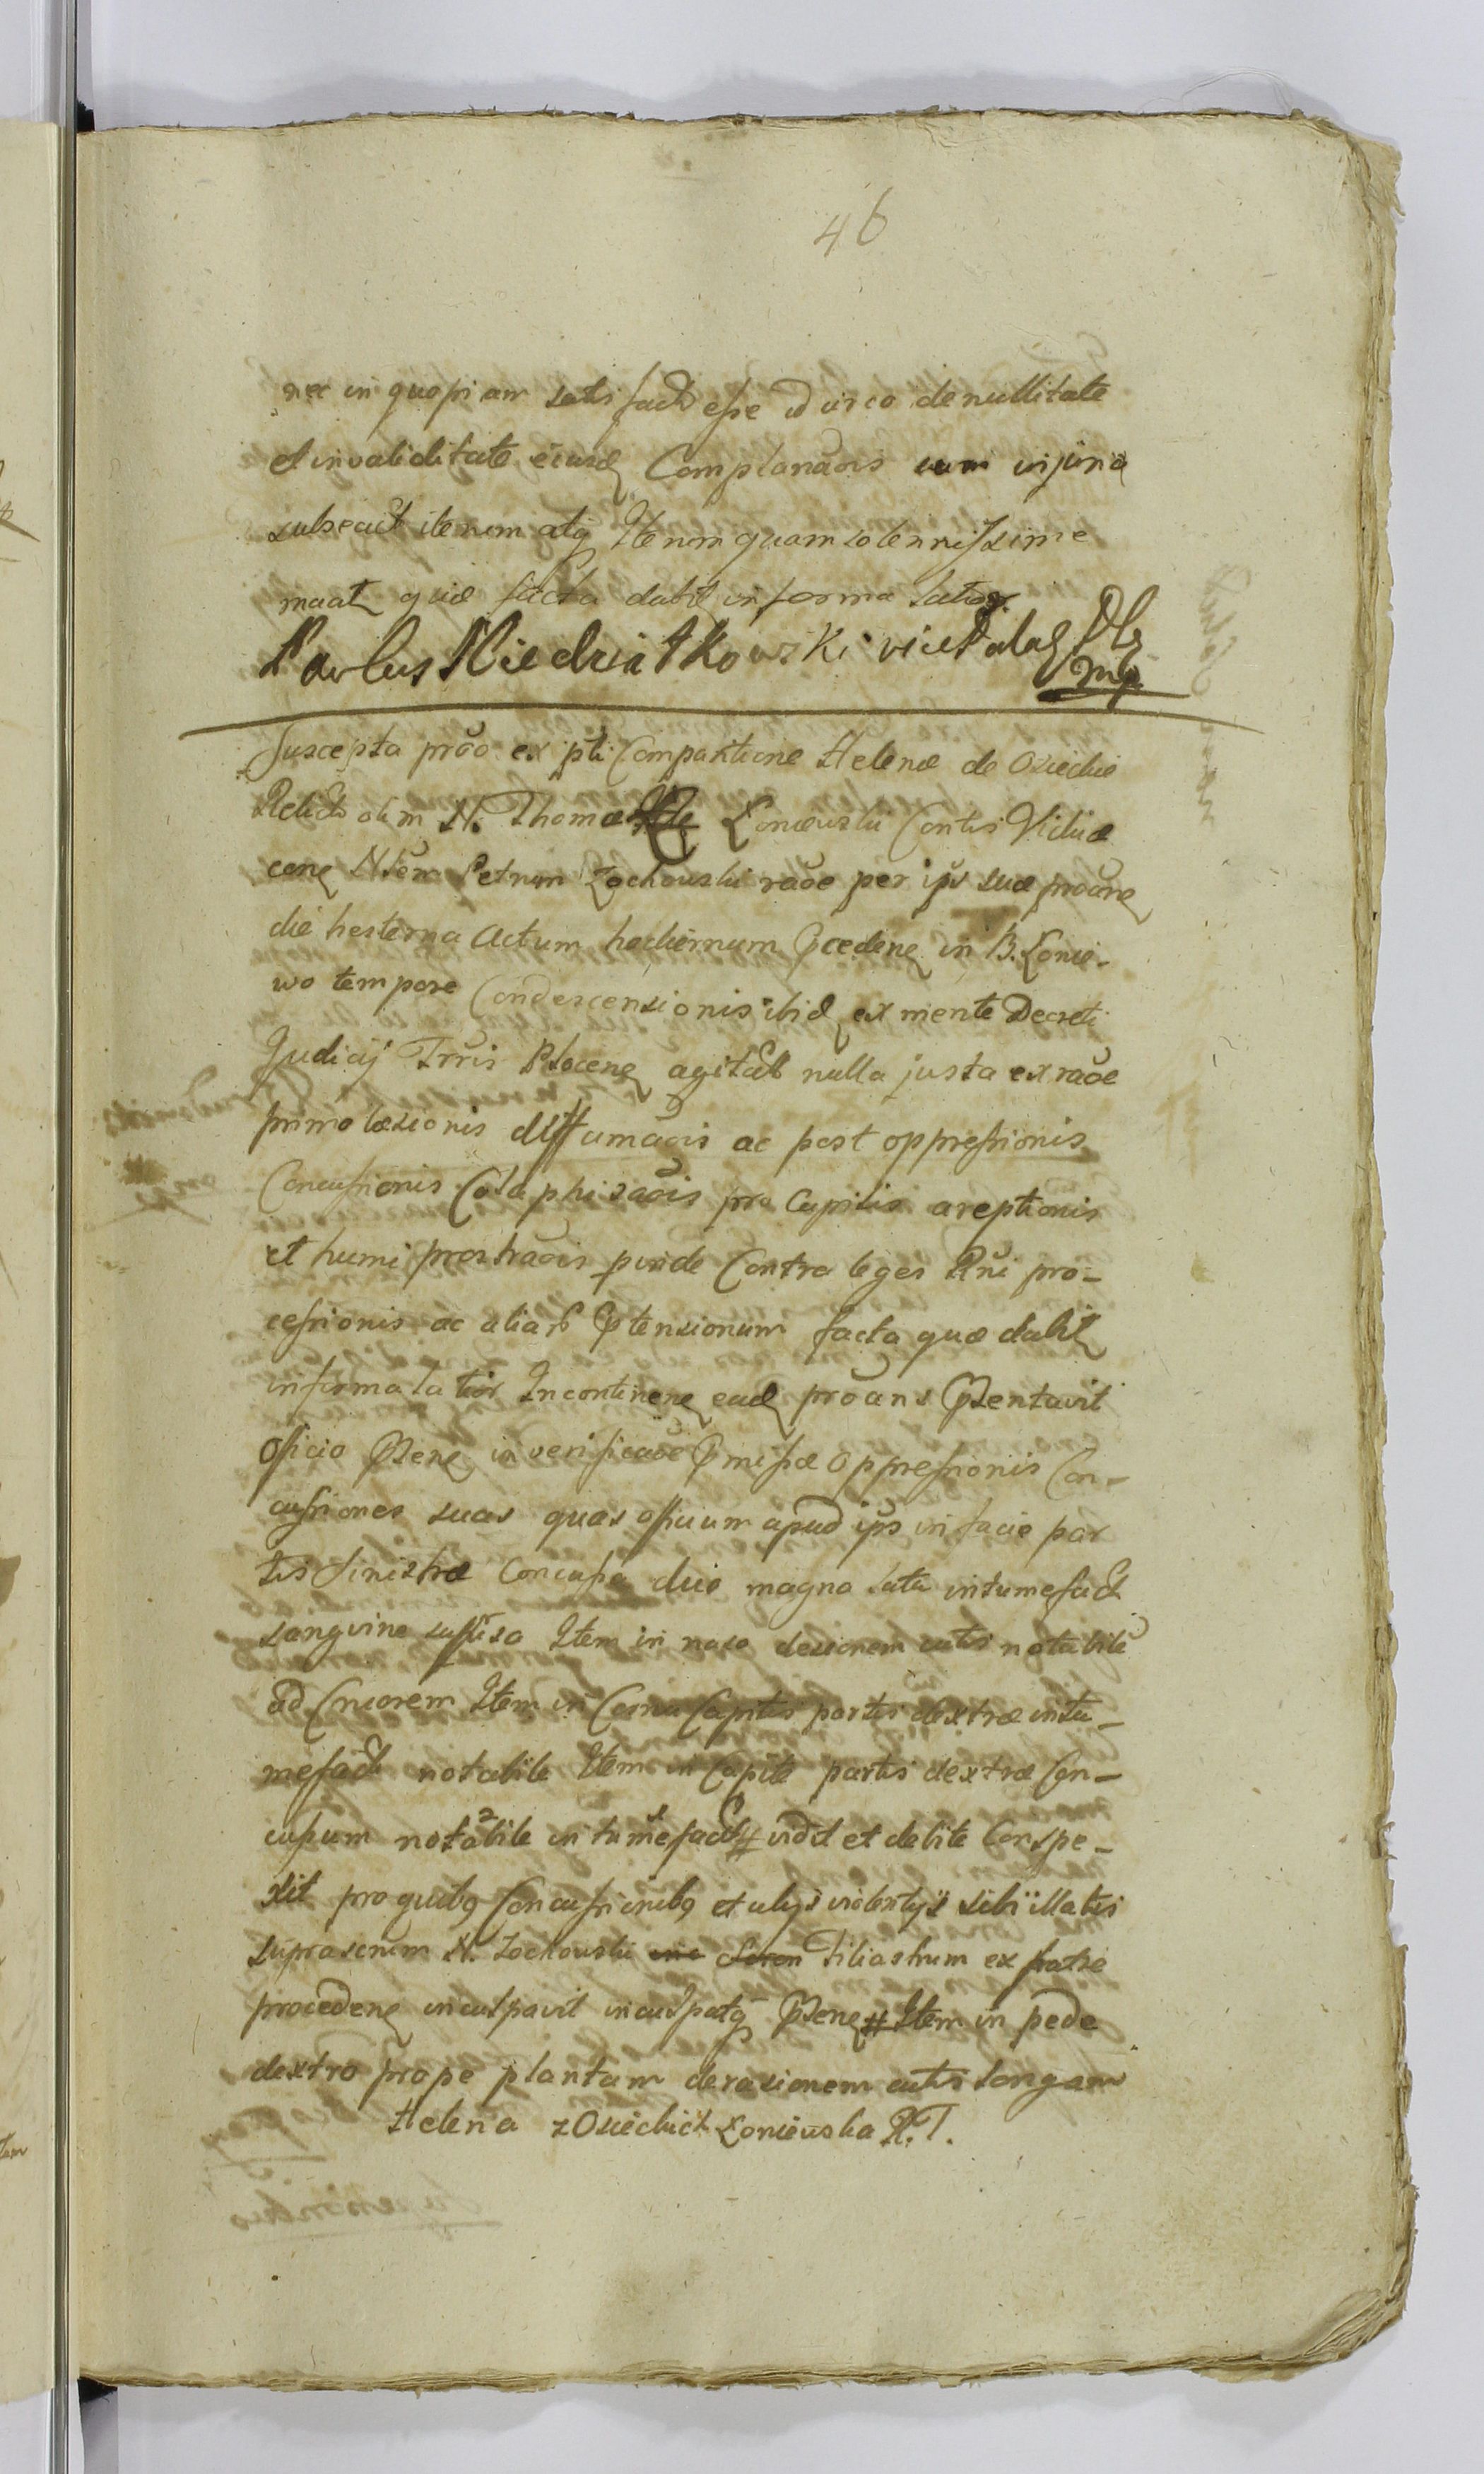 46
nec in quopiam satisfact esse idcirco de nullitate
et invaliditate eiusd Complanãois cum injuria
subsecut iterum atq Iterum quam solennissime
maat quia facta dabit in forma latior
Paulus Niedziałkowski mp
Suscepta prõo ex pti Comparitione Helenæ de Osiechie
Relictæ olim N. Thomæ Łoniewski Contis Viduæ
cong Nlem Petrum Zochowski raõe per ips suæ proãne
die hesterna Actum hodiernum pcedene in B. Łonie-
wo tempore Condescensionis ibid ex mente Decreti
Judicij Trris Plocene agitat nulla justa ex raõe
primo læsionis diffamãois ac post oppressionis
Concussionis Colaphisãois pro Capitis areptionis
et humi prostrãois perinde Contra leges Rni pro-
cessionis ac aliar ptensionum facta quæ dabit
in forma latior Incontinene ead proãns Psentavit
Officio Psene in verificãoe pmissæ Oppressionis Con-
cussiones suas quas officium apud ips in facie par
tis sinistræ Concussa duo magno lata intumefact
sangvine suffusa Item in naso desionem cutis notabile
ad Cruorem Item in Cornu Capitis partis dextræ intu-
mefact notabile Item in Capite partis dextræ Con-
cussum notabile intumefact # vidit et debite Conspe-
xit pro quibq Concussionibq et alijs violentijs sibi illatis
suprascrum N. Zochowski Filiastrum ex fratre
procedene inculpavit inculpatq Psene # Item in pede
dextro prope plantam derasionem cutis longam
Helena z Osiechich Łoniewska R.T.